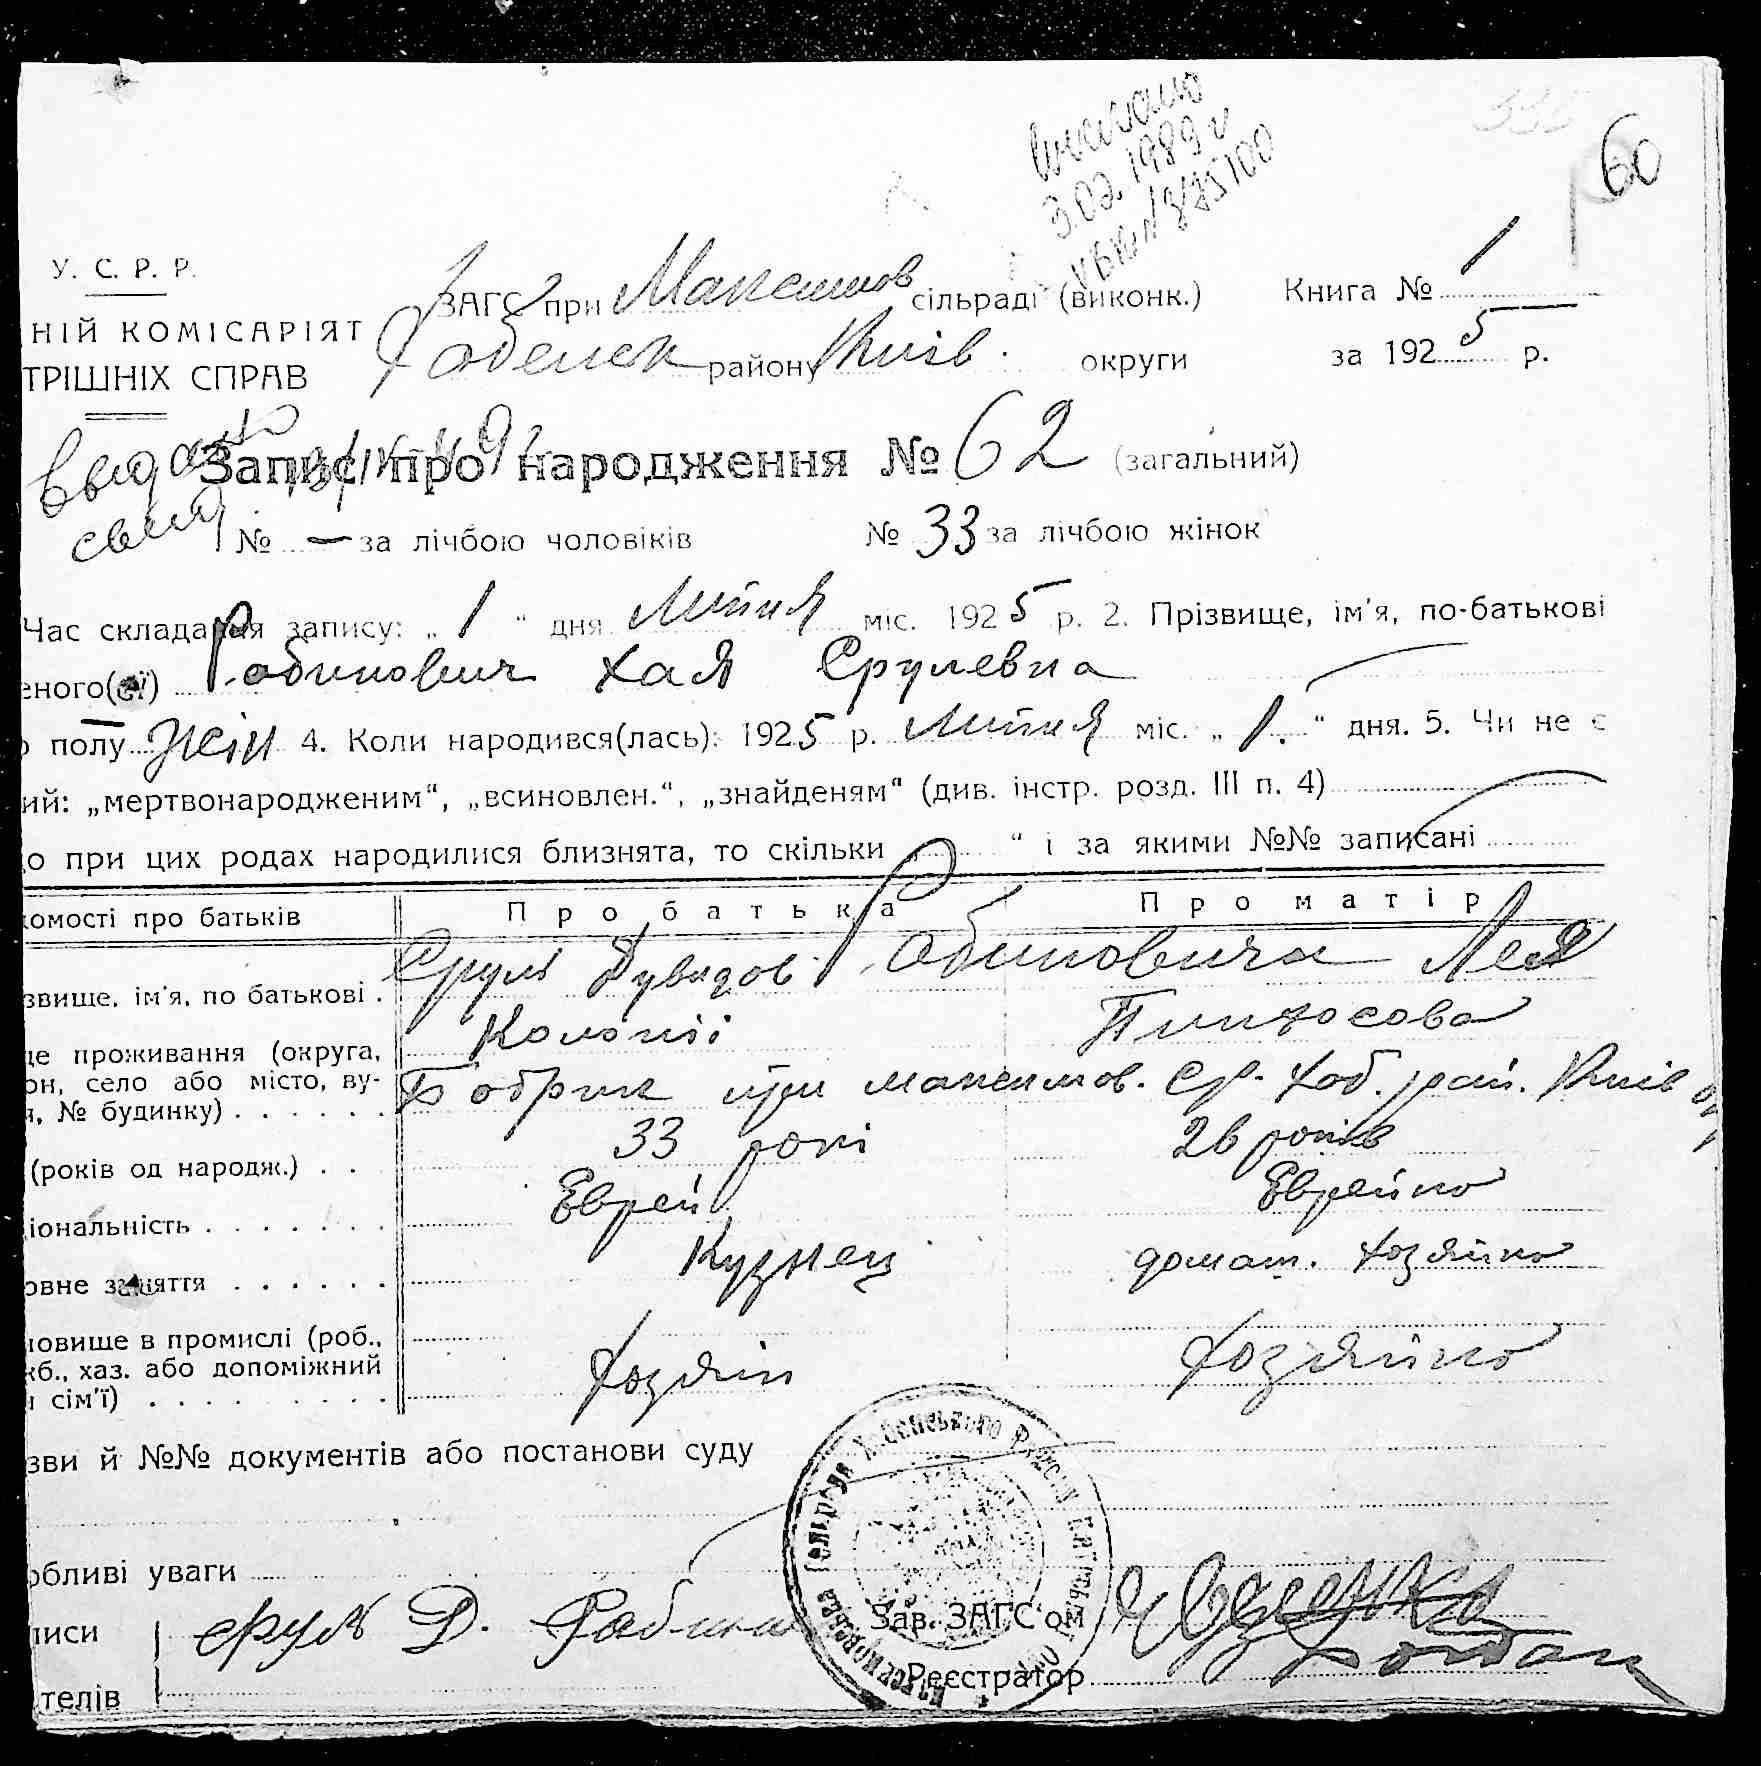 60
3.02.1989 г
У. С. Р. Р.
ЗАГС при Максимов сільраді (виконк.) Книга № 1
НІЙ КОМІСАРІЯТ
району Київ. округи за 1925 р.
ТРІШНІХ СПРАВ
Запис про народження № 62 (загальний)
№ — за лічбою чоловіків № 33 за лічбою жінок
Час складання запису: „ 1 “ дня Липня міс. 1925 р. 2. Прізвище, ім'я, по-батькові
еного(ої) Рабинович Хая Срулевна
полу жін 4. Коли народився(лась): 1925 р. Липня міс. „ 1. “ дня. 5. Чи не є
ий: „мертвонародженим“, „всиновлен.“, „знайденям“ (див. інстр. розд. III п. 4)
о при цих родах народилися близнята, то скільки „ “ і за якими №№ записані
омості про батьків Про батька Про матір
Сруль Дувидов. Рабиновичи Лея
звище, ім'я, по батькові .
Колонії Пинхосова
це проживання (округа,
он, село або місто, ву-
Бобрик при максимов. ср. Хаб. рай. Київ
, № будинку) . . . . . .
33 рокі 26 років
(років од народж.) . .
Еврей Еврейка
іональність . . . . . . .
Кузнец домаш. хозяйка
овне заняття . . . . . .
новище в промислі (роб.,
жб., хаз. або допоміжний
Хозяін Хозяйка
сім'ї) . . . . . . . . .
зви й №№ документів або постанови суду
обливі уваги
писи Сруль Д. Рабин Зав. ЗАГС'ом
Реєстратор
телів